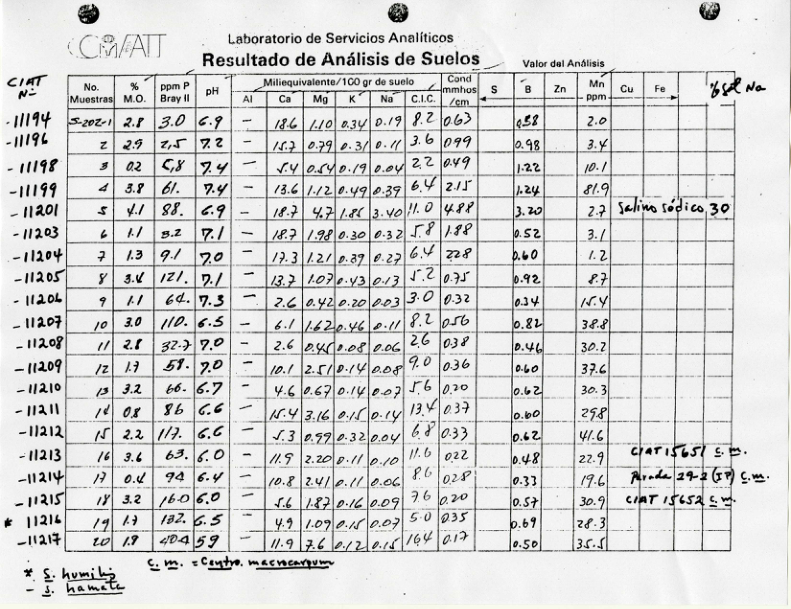 CIAT
Laboratorio de Servicios Analíticos
Resultado de Análisis de Suelos
Valor del Análisis
CIAT Nº No. Muestras % M.O. ppm P Bray II pH Miliequivalente/100 gr de suelo Al Ca Mg K Na C.I.C. Cond mmhos /cm S B Zn Mn ppm Cu Fe % sat Na
-11194 S-202-1 2.8 3.0 6.9 — 18.6 1.10 0.34 0.19 8.2 0.63 0.38 2.0
-11196 2 2.9 2,5 7.2 — 15.7 0.79 0.31 0.11 3.6 0.99 0.98 3.4
-11198 3 0.2 5,8 7.4 — 5.4 0.54 0.19 0.04 2.2 0.49 1.22 10.1
-11199 4 3.8 61. 7.4 — 13.6 1.12 0.49 0.39 6.4 2.15 1.24 81.9
-11201 5 4.1 88. 6.9 — 18.7 4.7 1.85 3.40 11.0 4.88 3.20 2.7 Salino sódico 30
-11203 6 1.1 3.2 7.1 — 18.7 1.98 0.30 0.32 5.8 1.88 0.52 3.1
-11204 7 1.3 9.1 7.0 — 17.3 1.21 0.39 0.27 6.4 2.28 0.60 1.2
-11205 8 3.4 121. 7.1 — 13.7 1.07 0.43 0.13 5.2 0.75 0.92 8.7
-11206 9 1.1 64. 7.3 — 2.6 0.42 0.20 0.03 3.0 0.32 0.34 15.4
-11207 10 3.0 110. 6.5 — 6.1 1.62 0.46 0.11 8.2 0.56 0.82 38.8
-11208 11 2.8 32.7 7.0 — 2.6 0.45 0.08 0.06 2.6 0.38 0.46 30.2
-11209 12 1.7 58. 7.0 — 10.1 2.51 0.14 0.08 9.0 0.36 0.60 37.6
-11210 13 3.2 66. 6.7 — 4.6 0.67 0.14 0.07 5.6 0.20 0.62 30.3
-11211 14 0.8 86 6.6 — 15.4 3.16 0.15 0.14 13.4 0.37 0.60 29.8
-11212 15 2.2 117. 6.6 — 5.3 0.99 0.32 0.04 6.8 0.33 0.62 41.6
-11213 16 3.6 63. 6.0 — 11.9 2.20 0.11 0.10 11.6 0.22 0.48 22.9 CIAT 15651 c.m.
-11214 17 0.4 94 6.4 — 10.8 2.41 0.11 0.06 8.6 0.28 0.33 19.6 Parada 29-2 (JP) c.m.
-11215 18 3.2 16.0 6.0 — 5.6 1.87 0.16 0.09 7.6 0.20 0.57 30.9 CIAT 15652 c.m.
* 11216 19 1.7 132. 6.5 — 4.9 1.09 0.15 0.07 5.0 0.35 0.69 28.3
-11217 20 1.9 40.4 5.9 — 11.9 7.6 0.12 0.15 16.4 0.17 0.50 35.5
* S. humilis c.m. = Centro. macrocarpum
- S. hamata